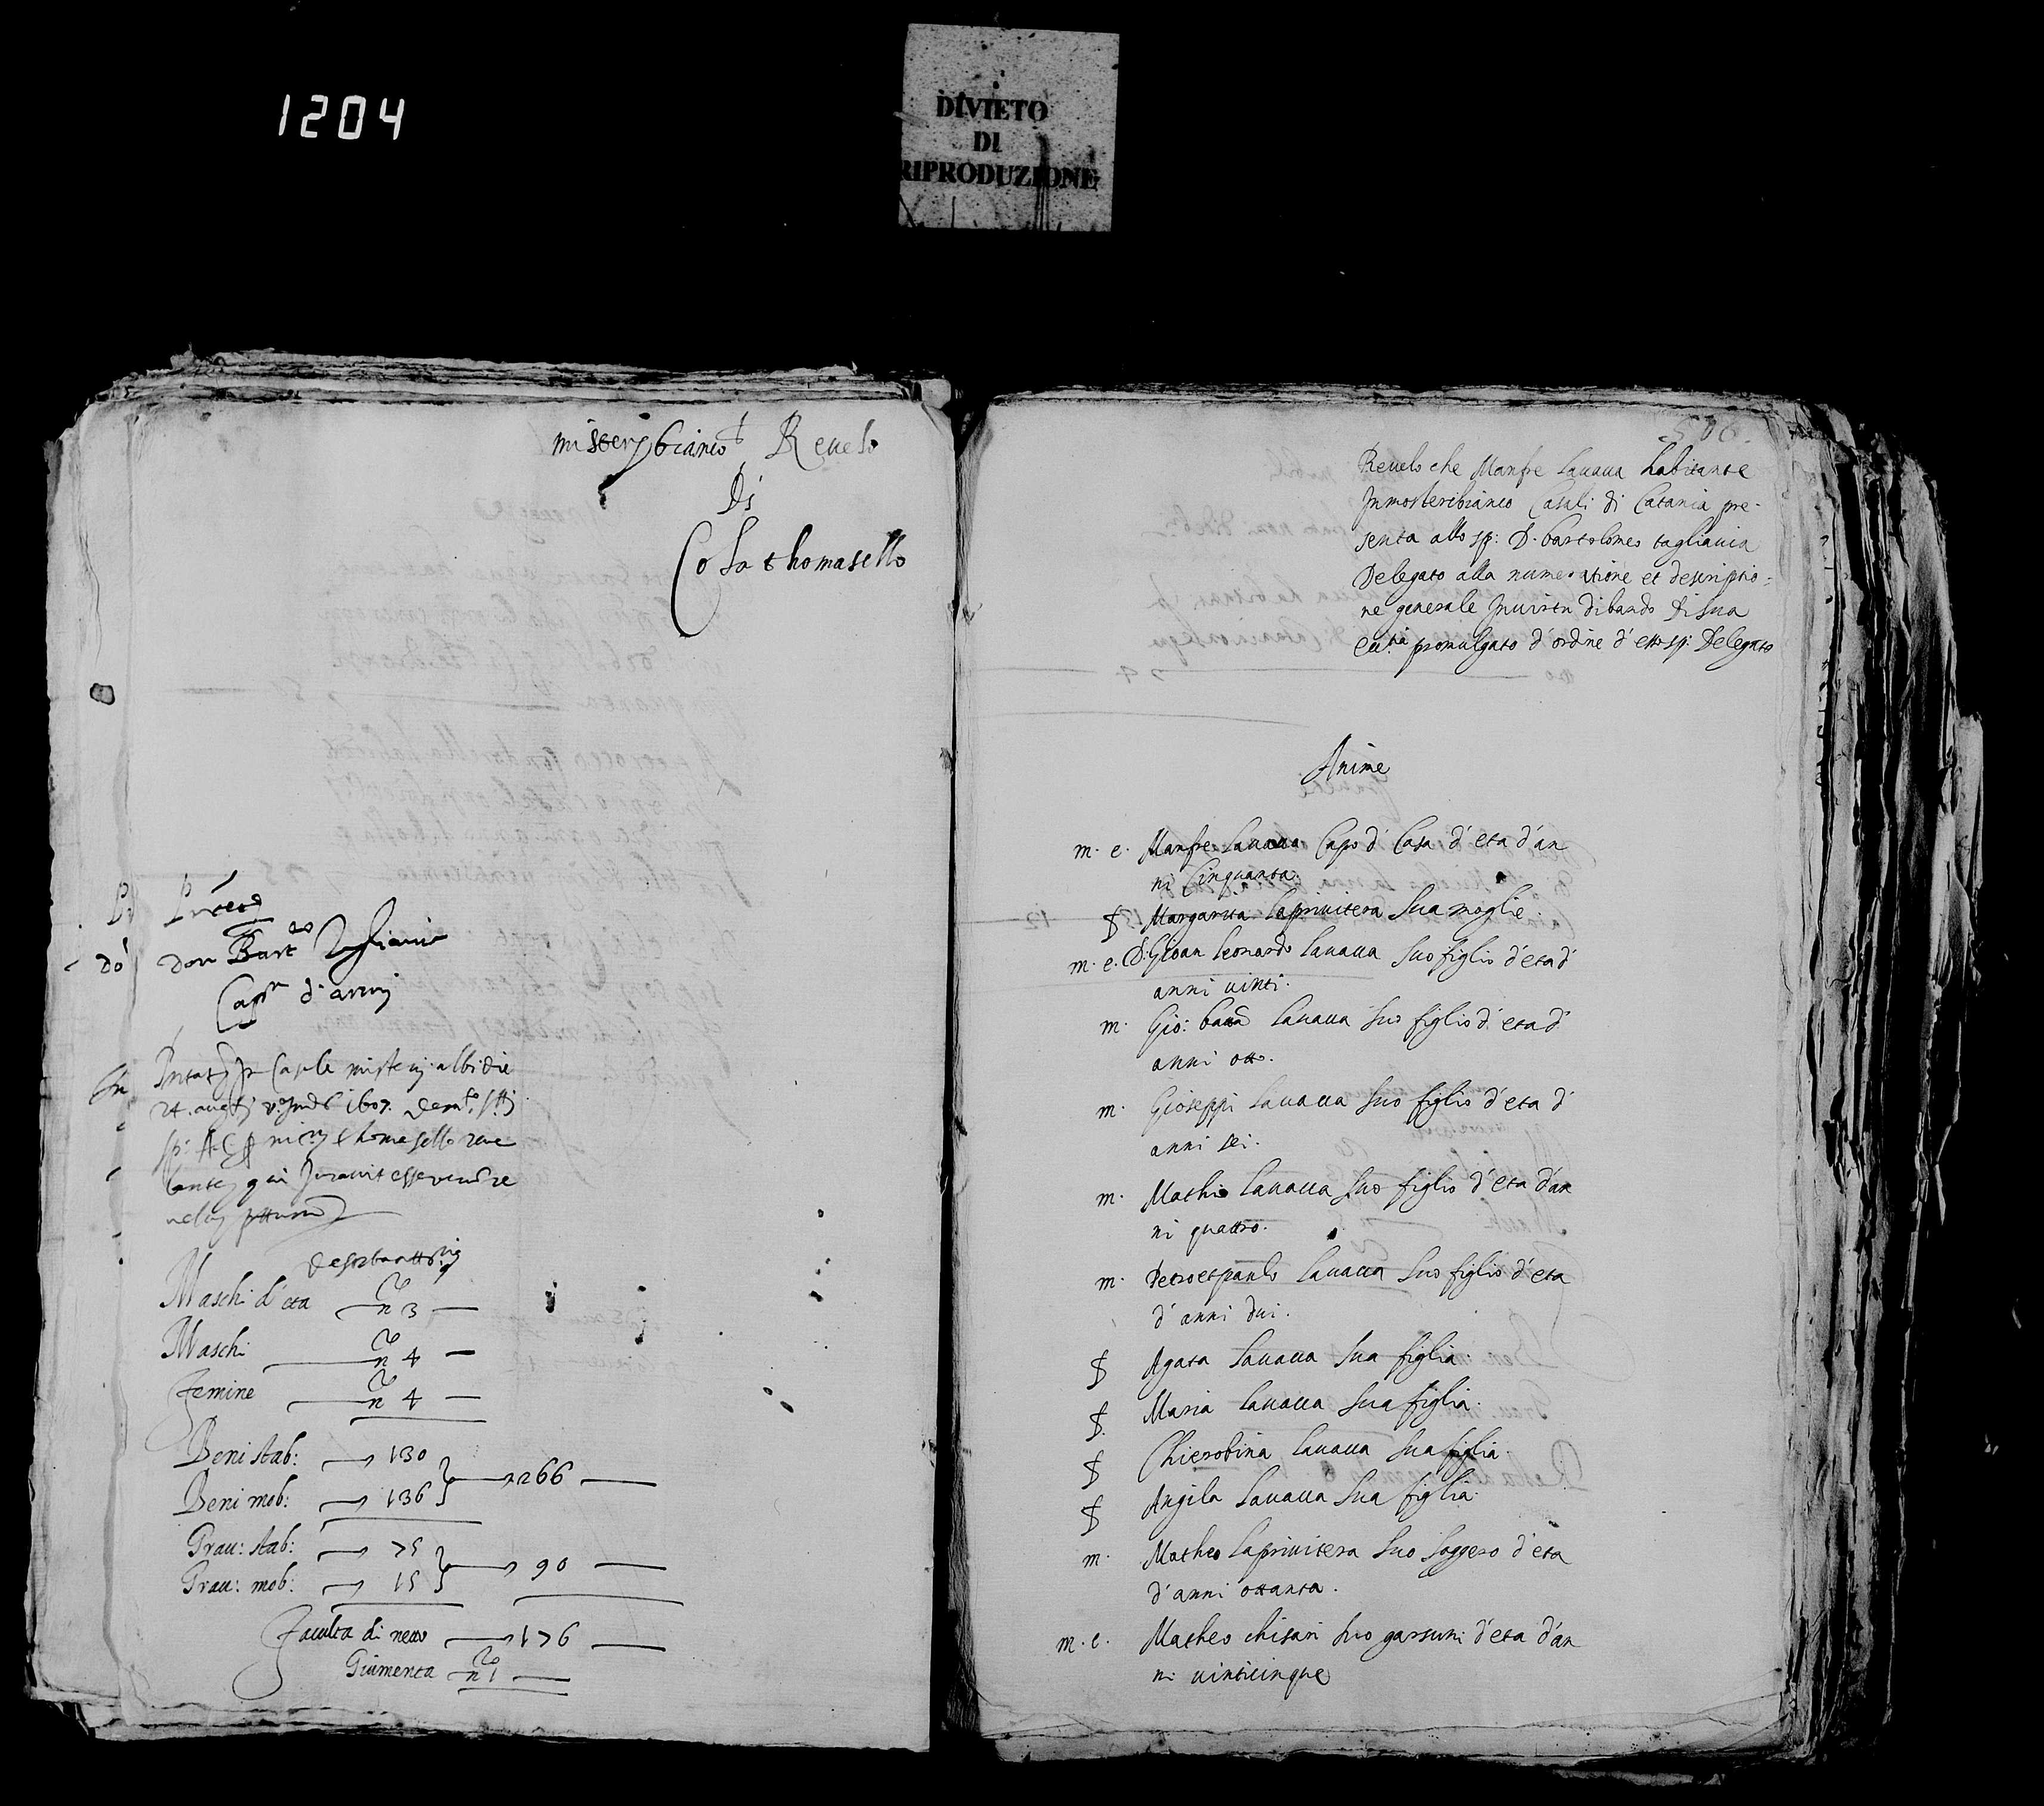 1204
DIVIETO
DI
RIPRODUZIONE
misterybianco Revelo
Di
Cola thomasello
don Bart.eo Tagliavia
Cap.n d'armi
Casale mistery albi die
24. aug.ti v.e Ind.s 1607.
sp: thomasello reve
lante qui juravit esse verum re
velum
Maschi d'eta n.o 3
Maschi n.o 4
Femine n.o 4
Beni stab: 130
Beni mob: 136 266
Grau: stab: 75
Grau: mob: 15 90
Faculta di netto 176
Giumenta n.o 1
506.
Revelo che Manfre Lavava habitante
In mosteribianco Casali di Catania pre-
senta allo sp: D. bartolomeo tagliavia
Delegato alla numeratione et descriptio-
ne generale In virtu di bando di sua
ecc.tia promulgato d'ordine d'esso sp: Delegato
Anime
m. e. Manfre Lavava Capo di Casa d'eta d'an
ni Cinquanta
f Margarita Laprivitera sua moglie.
m. e. D. Gioan Leonardo Lavava suo figlio d'eta d'
anni vinti.
m. Gio: batta Lavava suo figlio d'eta d'
anni otto.
m. Gioseppi Lavava suo figlio d'eta d'
anni sei.
m. Mathio Lavava suo figlio d'eta d'an
ni quattro.
m. Petroetpaulo Lavava suo figlio d'eta
d'anni dui.
f Agata Lavava sua figlia.
f. Maria Lavava sua figlia.
f Chierobina Lavava sua figlia.
f Angila Lavava sua figlia.
m. Matheo Laprivitera suo soggero d'eta
d'anni ottanta.
m. e. Matheo chisari suo garsuni d'eta d'an
ni vinticinque